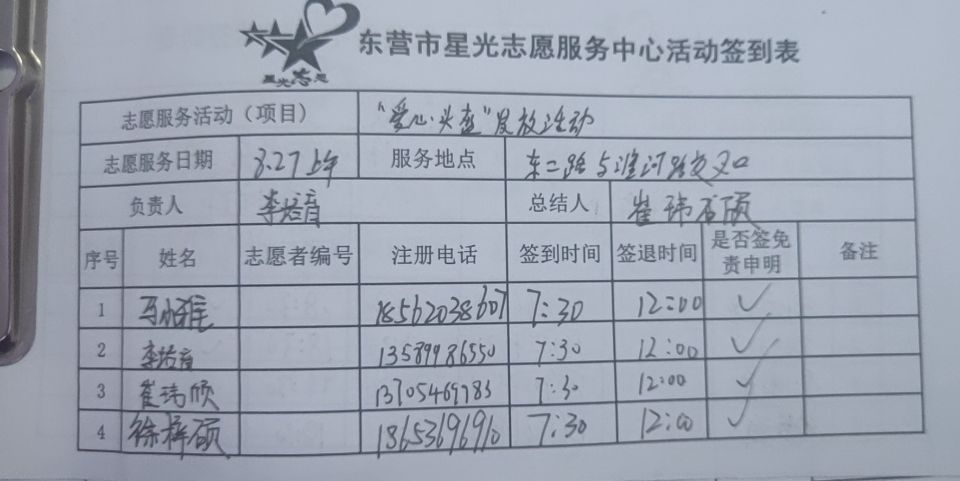 东营市星光志愿服务中心活动签到表
星光志愿
志愿服务活动（项目） "爱心头盔"发放活动
志愿服务日期 8.27上午 服务地点 东二路与淮河路交叉口
负责人 李培音 总结人 崔玮硕
序号 姓名 志愿者编号 注册电话 签到时间 签退时间 是否签免责申明 备注
1 18562038607 7:30 12:00 ✓
2 李培音 13589986550 7:30 12:00 ✓
3 崔玮颀 13705469783 7:30 12:00 ✓
4 徐梓硕 18653696910 7:30 12:00 ✓